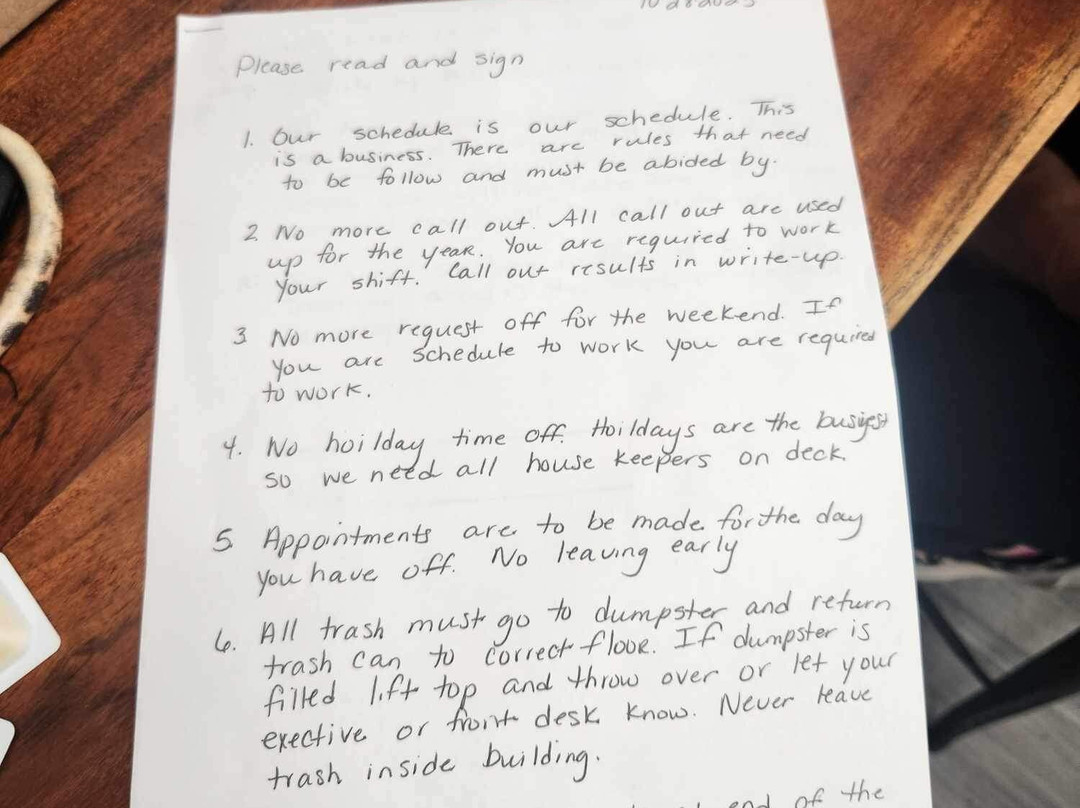 Please read and sign
1. Our schedule is our schedule. This
is a business. There are rules that need
to be follow and must be abided by.
2 No more call out. All call out are used
up for the year. You are required to work
your shift. Call out results in write-up.
3 No more request off for the weekend. If
you are schedule to work you are required
to work.
4. No hoilday time off. Hoildays are the busyest
so we need all house keepers on deck
5 Appointments are to be made for the day
you have off. No leaving early
6. All trash must go to dumpster and return
trash can to correct floor. If dumpster is
filled lift top and throw over or let your
exective or front desk know. Never leave
trash inside building.
end of the